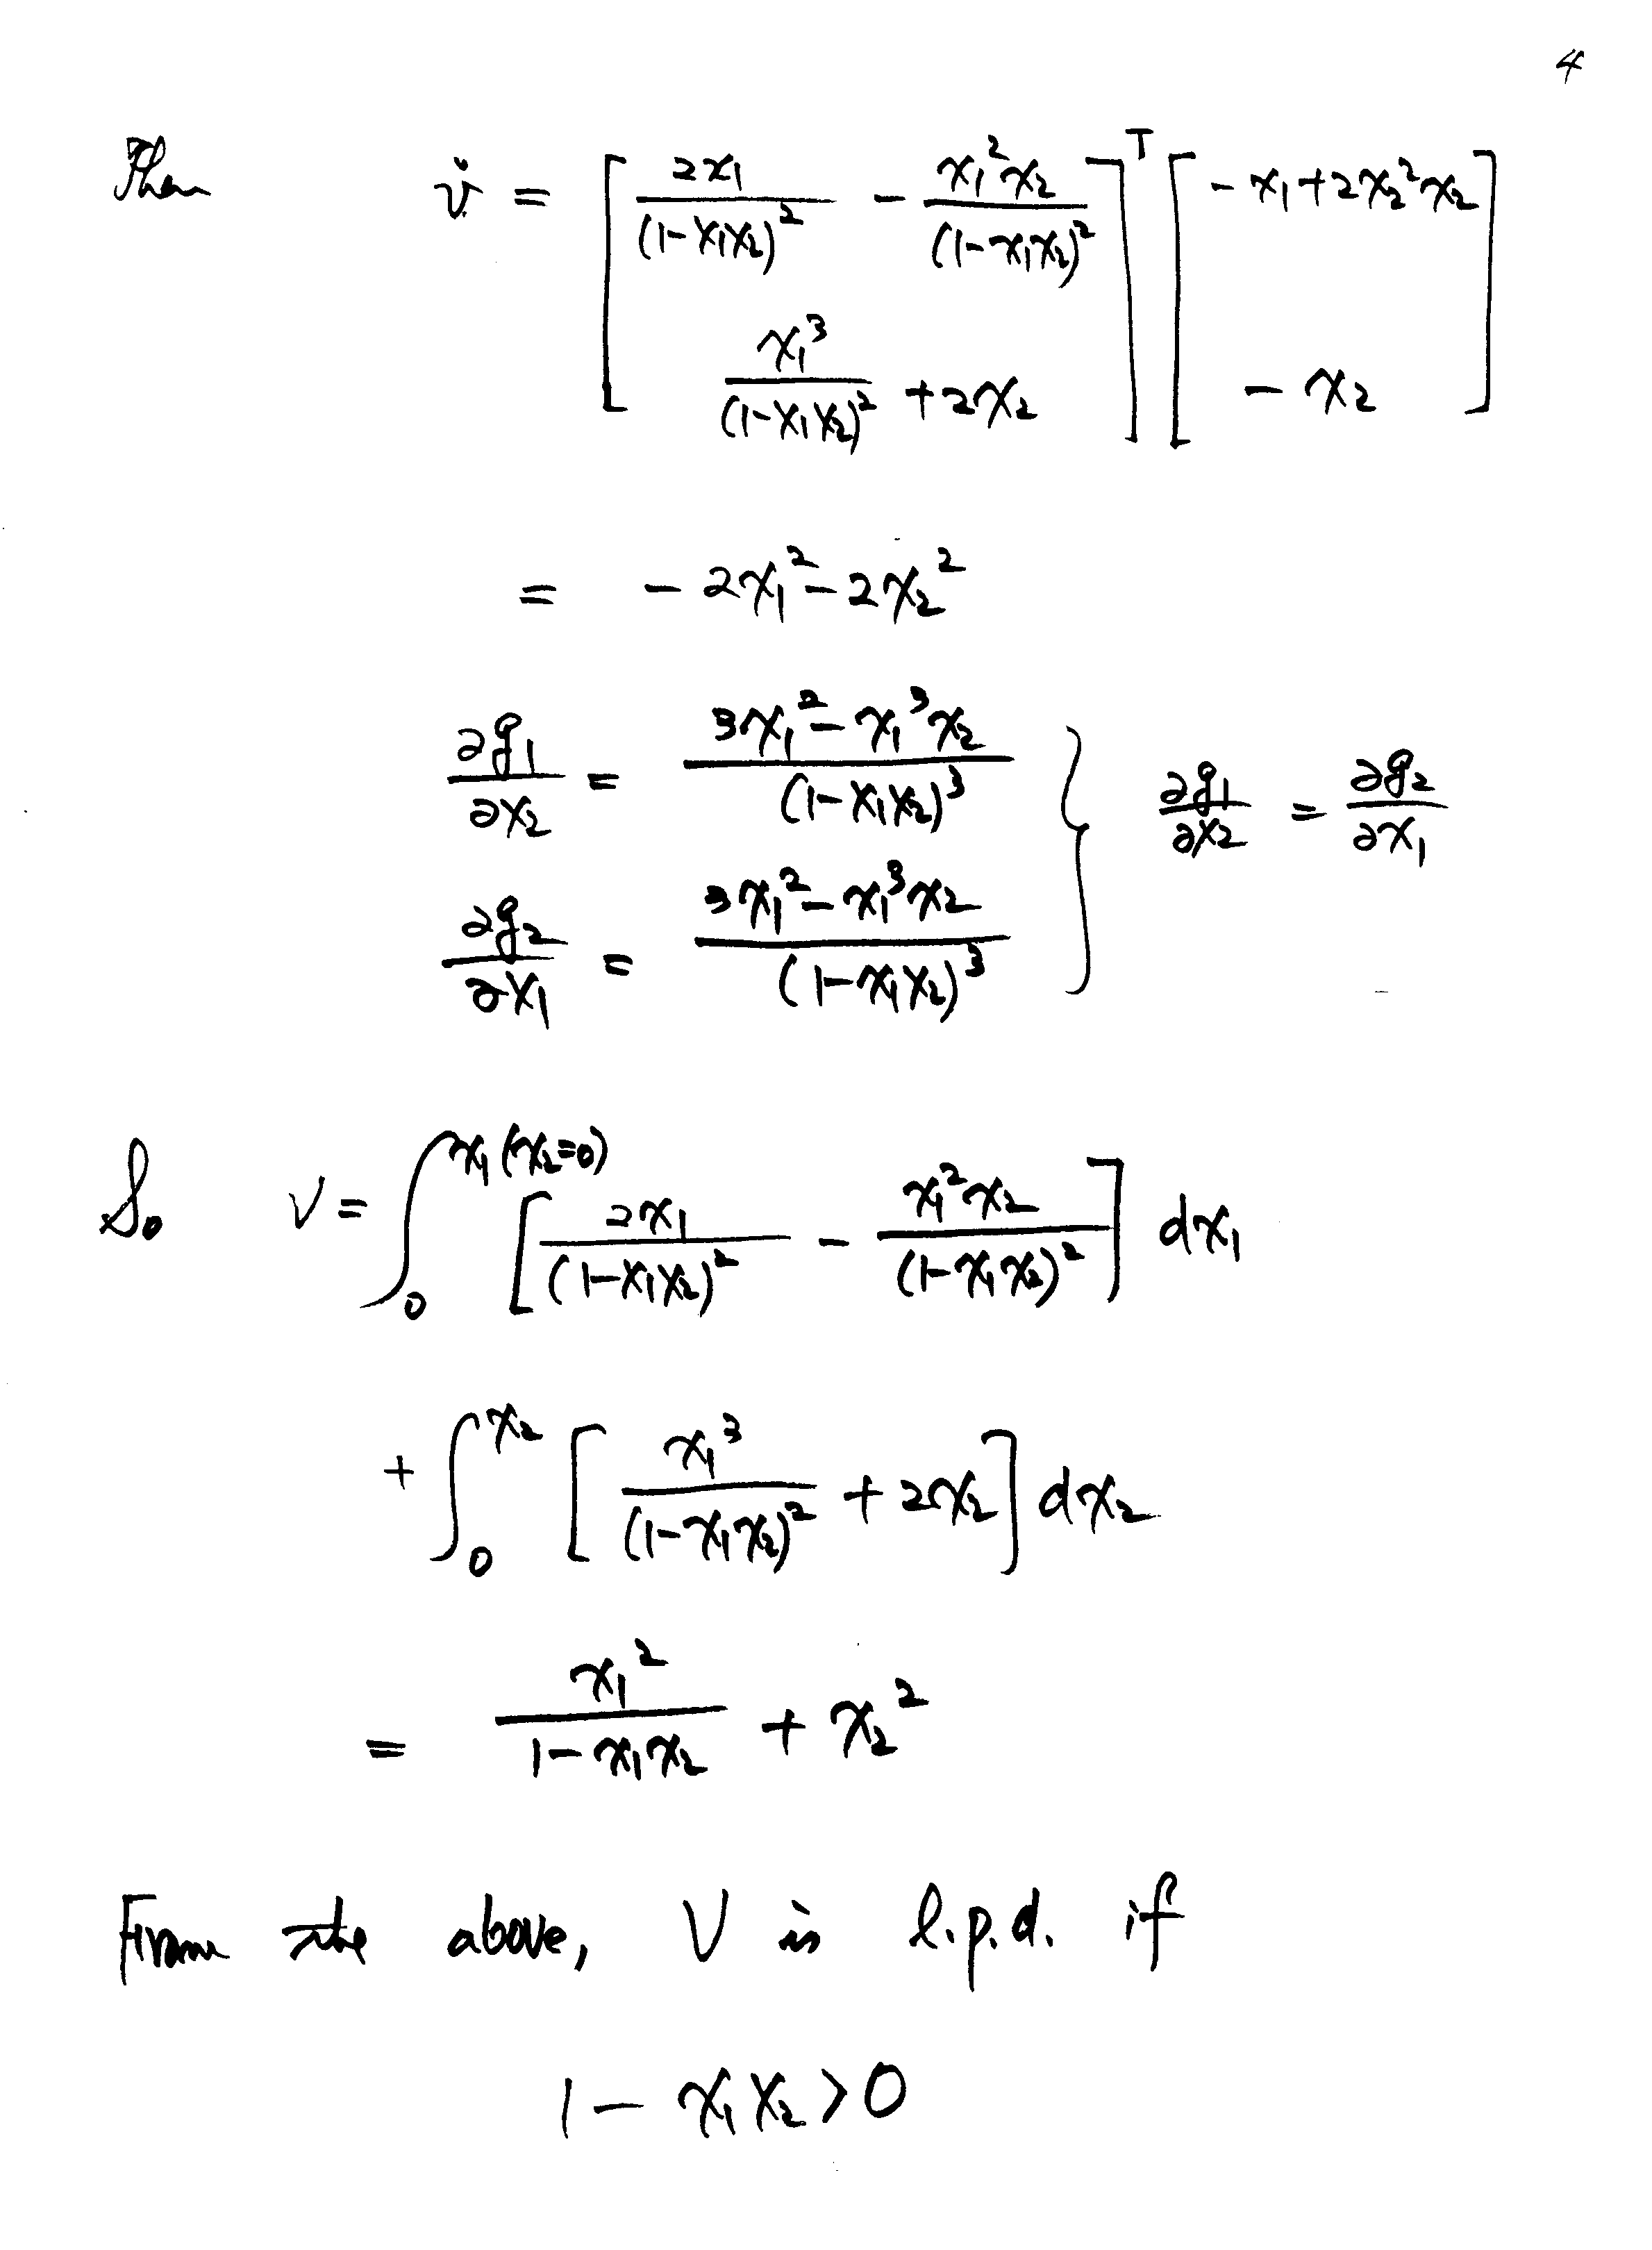 4
Then $\dot{v} = \begin{bmatrix} \frac{2x_1}{(1-x_1x_2)^2} - \frac{x_1^2x_2}{(1-x_1x_2)^2} \\ \frac{x_1^3}{(1-x_1x_2)^2} + 2x_2 \end{bmatrix}^T \begin{bmatrix} -x_1+2x_2^2x_2 \\ -x_2 \end{bmatrix}$
$= -2x_1^2 - 2x_2^2$
$\left. \begin{matrix} \frac{\partial g_1}{\partial x_2} = \frac{3x_1^2 - x_1^3x_2}{(1-x_1x_2)^3} \\ \frac{\partial g_2}{\partial x_1} = \frac{3x_1^2 - x_1^3x_2}{(1-x_1x_2)^3} \end{matrix} \right\} \frac{\partial g_1}{\partial x_2} = \frac{\partial g_2}{\partial x_1}$
So $V = \int_0^{x_1(x_2=0)} \left[ \frac{2x_1}{(1-x_1x_2)^2} - \frac{x_1^2x_2}{(1-x_1x_2)^2} \right] dx_1$
$+ \int_0^{x_2} \left[ \frac{x_1^3}{(1-x_1x_2)^2} + 2x_2 \right] dx_2$
$= \frac{x_1^2}{1-x_1x_2} + x_2^2$
From the above, V is l.p.d. if
$1 - x_1x_2 > 0$